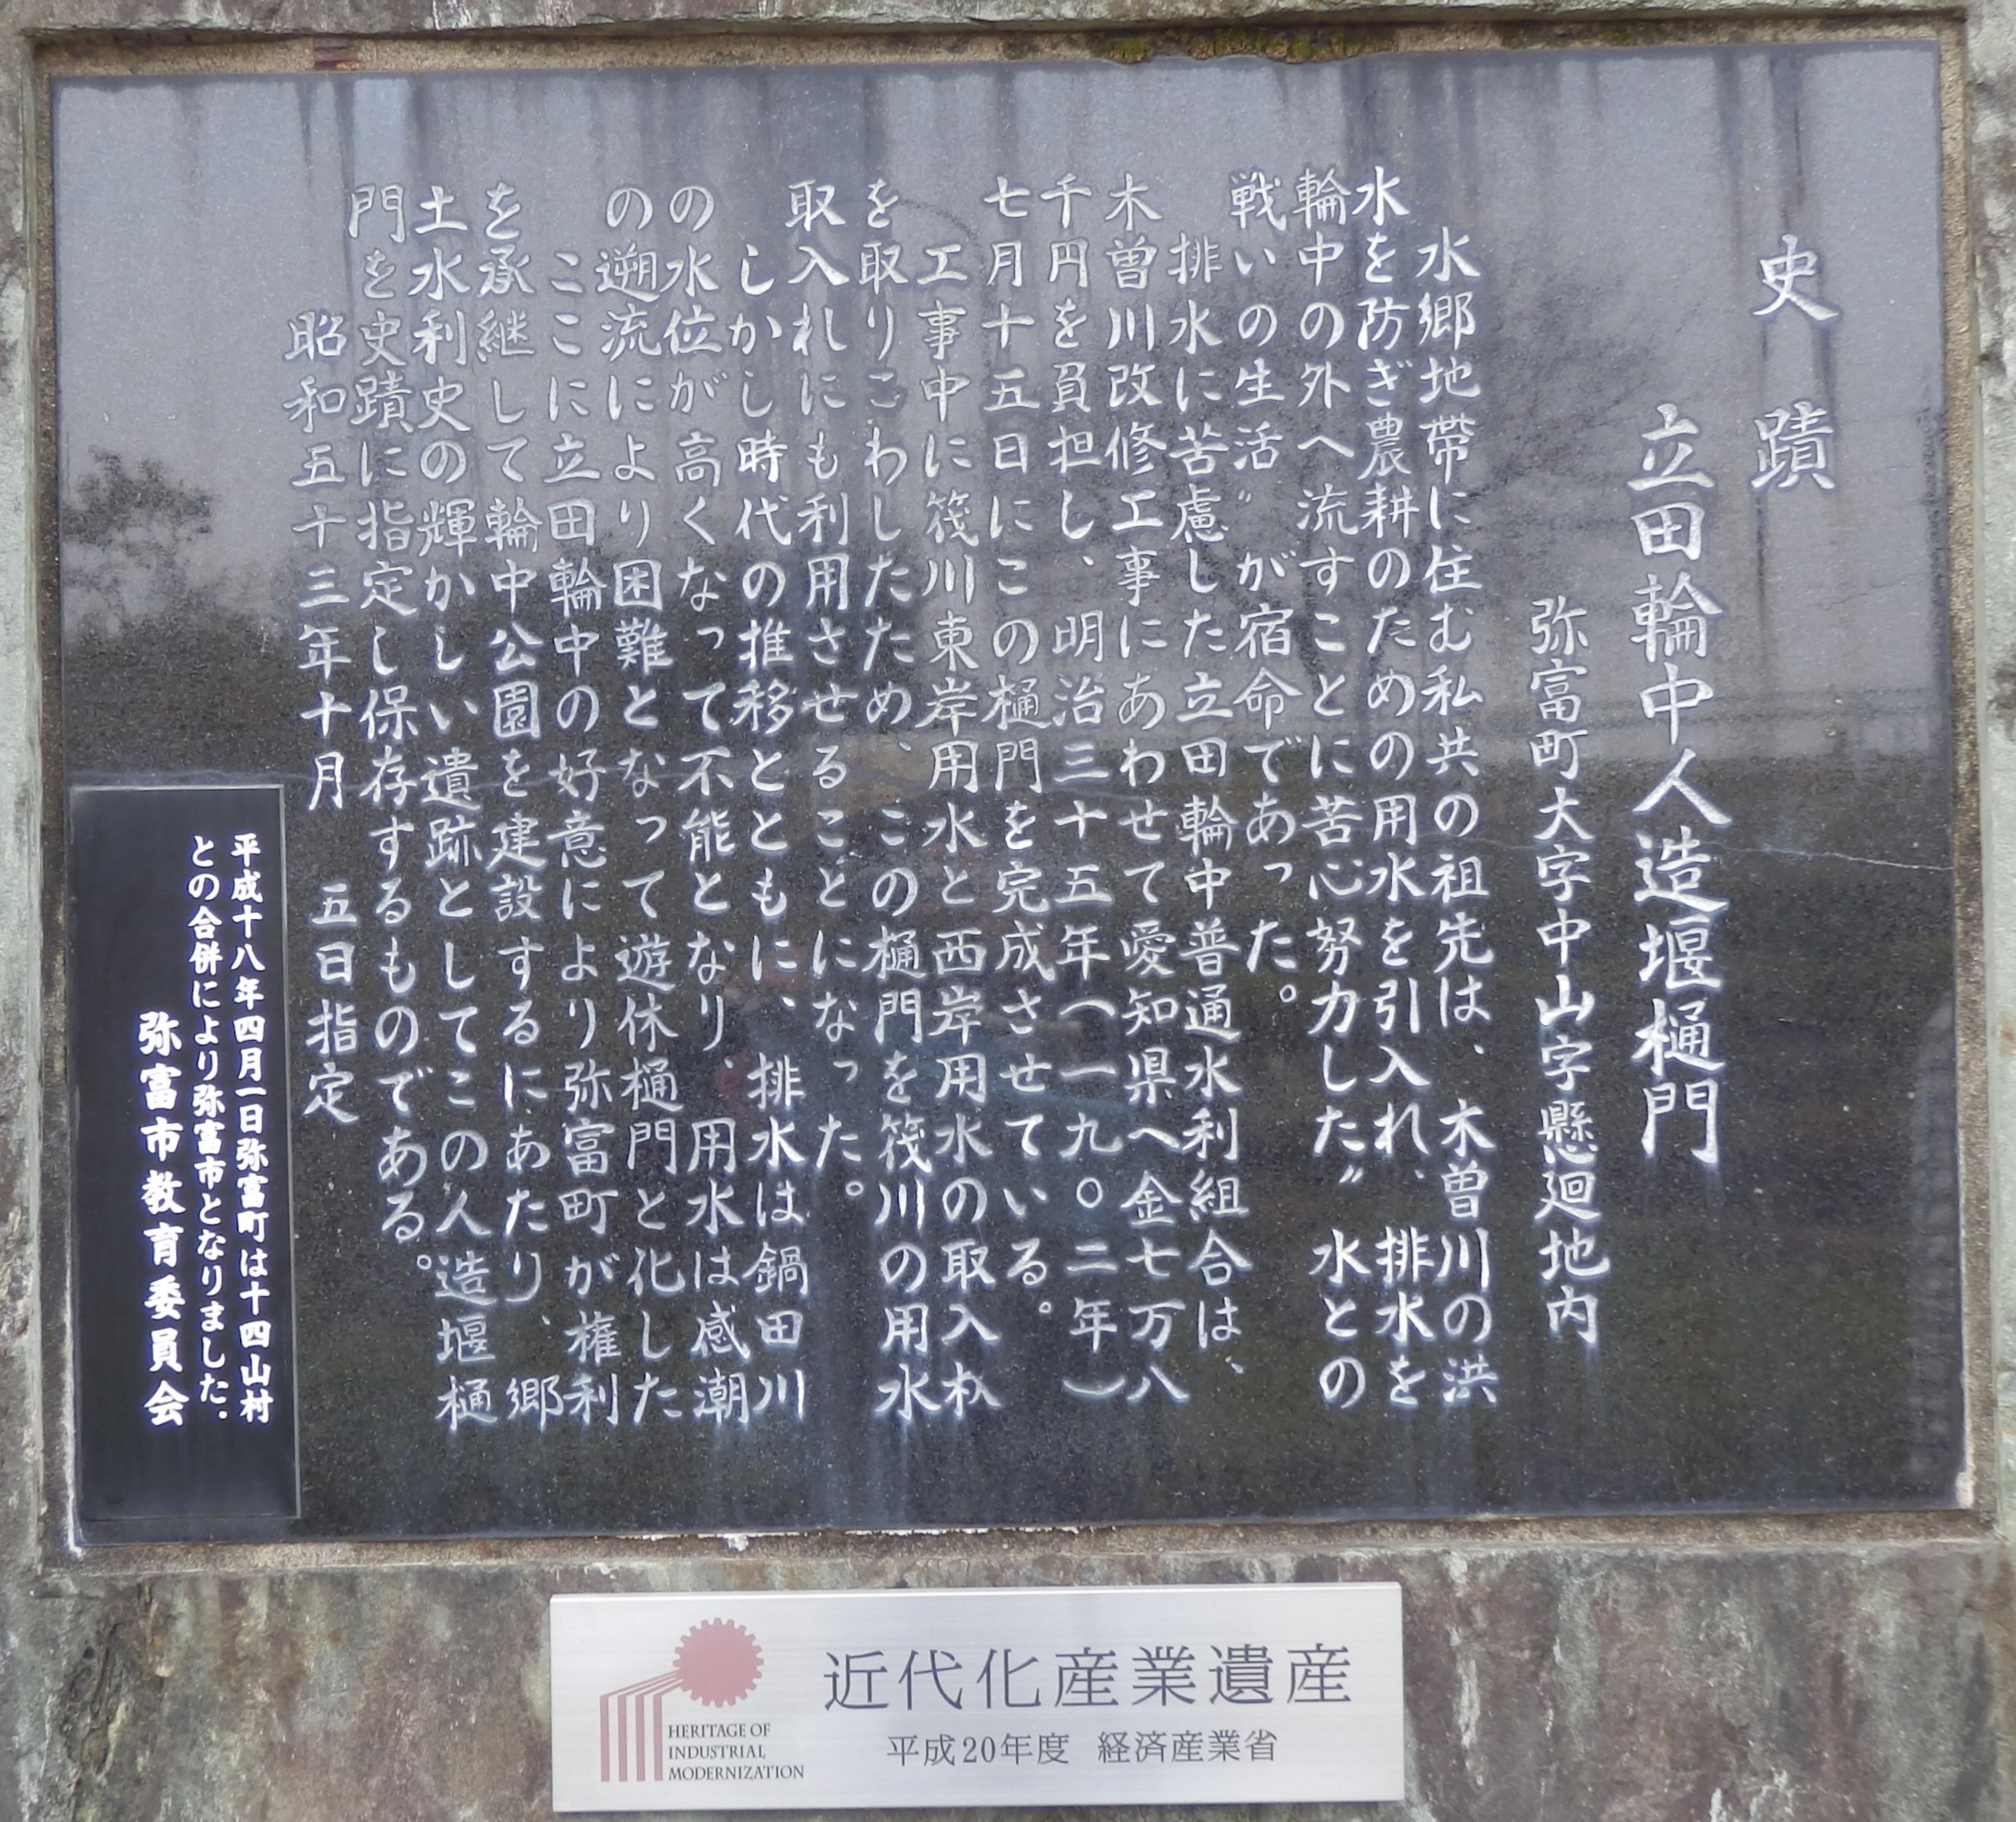 史蹟
立田輪中人造堰樋門
弥富町大字中山字懸廻地内
水郷地帯に住む私共の祖先は、木曽川の洪
水を防ぎ農耕のための用水を引入れ、排水を
輪中の外へ流すことに苦心努力した〃水との
戦いの生活〃が宿命であった。
排水に苦慮した立田輪中普通水利組合は、
木曽川改修工事にあわせて愛知県へ金七万八
千円を負担し、明治三十五年(一九〇二年)
七月十五日にこの樋門を完成させている。
工事中に筏川東岸用水と西岸用水の取入れ
を取りこわしたため、この樋門を筏川の用水
取入れにも利用させることになった。
しかし時代の推移とともに、排水は鍋田川
の水位が高くなって不能となり、用水は感潮
の遡流により困難となって遊休樋門と化した
ここに立田輪中の好意により弥富町が権利
を承継して輪中公園を建設するにあたり、郷
土水利史の輝かしい遺跡としてこの人造堰樋
門を史蹟に指定し保存するものである。
昭和五十三年十月 五日指定
平成十八年四月一日弥富町は十四山村
との合併により弥富市となりました.
弥富市教育委員会
近代化産業遺産
平成20年度 経済産業省
HERITAGE OF
INDUSTRIAL
MODERNIZATION